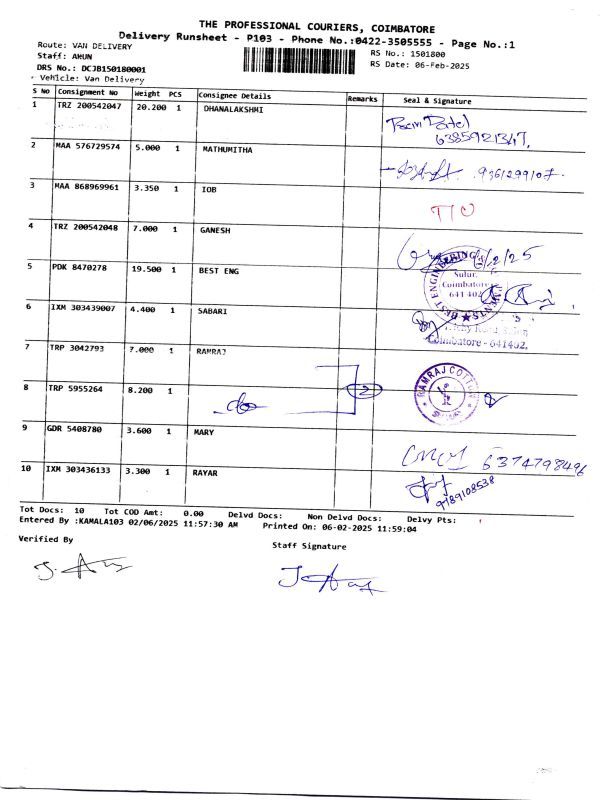 THE PROFESSIONAL COURIERS, COIMBATORE
Delivery Runsheet - P103 - Phone No.:0422-3505555 - Page No.:1
Route: VAN DELIVERY
RS No.: 1501800
Staff: ARUN
RS Date: 06-Feb-2025
DRS No.: DCJB150180001
Vehicle: Van Delivery
S No Consignment No Weight PCS Consignee Details Remarks Seal & Signature
1 TRZ 200542047 20.200 1 DHANALAKSHMI
6385921347
2 MAA 576729574 5.000 1 MATHUMITHA
9361299107
3 MAA 868969961 3.350 1 IOB
T/O
4 TRZ 200542048 7.000 1 GANESH
/2/25
5 PDK 8470278 19.500 1 BEST ENG
BEST ENGINEERING
Sulur,
Coimbatore
641 402
6 IXM 303439007 4.400 1 SABARI
Coimbatore - 641402.
7 TRP 3042793 7.000 1 RAMRAJ
RAMRAJ COTTON
8 TRP 5955264 8.200 1 do 2
9 GDR 5408780 3.600 1 MARY
6374798496
10 IXM 303436133 3.300 1 RAYAR
9789108538
Tot Docs: 10 Tot COD Amt: 0.00 Delvd Docs: Non Delvd Docs: Delvy Pts:
Entered By :KAMALA103 02/06/2025 11:57:30 AM Printed On: 06-02-2025 11:59:04
Verified By
Staff Signature